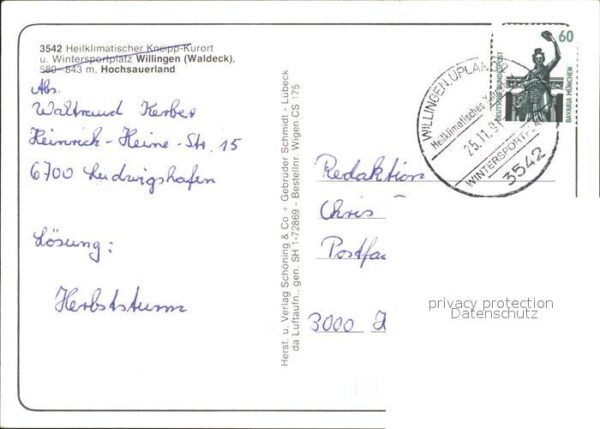 3542 Heilklimatischer Kneipp-Kurort
u. Wintersportplatz Willingen (Waldeck).
580 - 843 m. Hochsauerland
Abs.
Waltraud Kerber
Heinrich-Heine-Str. 15
6700 Ludwigshafen
Lösung:
Herbststurm
Herst. u. Verlag Schöning & Co + Gebrüder Schmidt - Lübeck
da Luftaufn., gen. SH 1-72869 - Bestellnr. Wigen CS 175
60
DEUTSCHE BUNDESPOST
BAVARIA MÜNCHEN
WILLINGEN, UPLAND 2
Heilklimatisches
25.11.91
WINTERSPORT
3542
Redaktion
Chris
Postfac
3000 H
privacy protection
Datenschutz